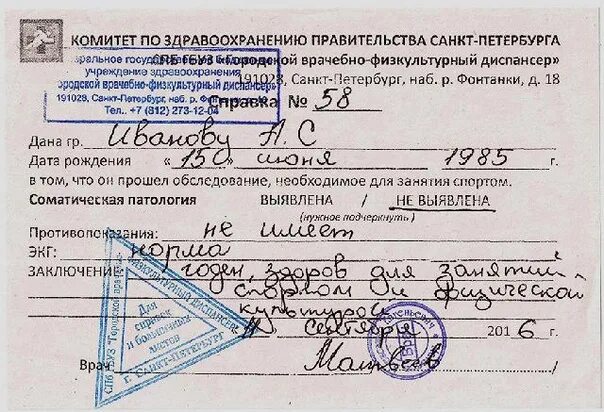 КОМИТЕТ ПО ЗДРАВООХРАНЕНИЮ ПРАВИТЕЛЬСТВА САНКТ-ПЕТЕРБУРГА
СПБ ГБУЗ «Городской врачебно-физкультурный диспансер»
191028, Санкт-Петербург, наб. р. Фонтанки, д. 18
учреждение здравоохранения
ородской врачебно-физкультурный диспансер»
191028, Санкт-Петербург, наб. р.
Тел.. +7 (812) 273-12-04
Справка № 58
Дана гр. Иванову А. С
Дата рождения « 15 » июня 1985 г.
в том, что он прошел обследование, необходимое для занятия спортом.
Соматическая патология ВЫЯВЛЕНА / НЕ ВЫЯВЛЕНА
(нужное подчеркнуть)
Противопоказания: не имеет
ЭКГ: норма
ЗАКЛЮЧЕНИЕ: годен, здоров для занятий
спортом и физической
культурой
11 сентября 2016 г.
Врач Матвеев
Для
справок
и больничных
листов
г. САНКТ-ПЕТЕРБУРГ
СПб ГБУЗ "Городской врачебно-
ФИЗКУЛЬТУРНЫЙ ДИСПАНСЕР"